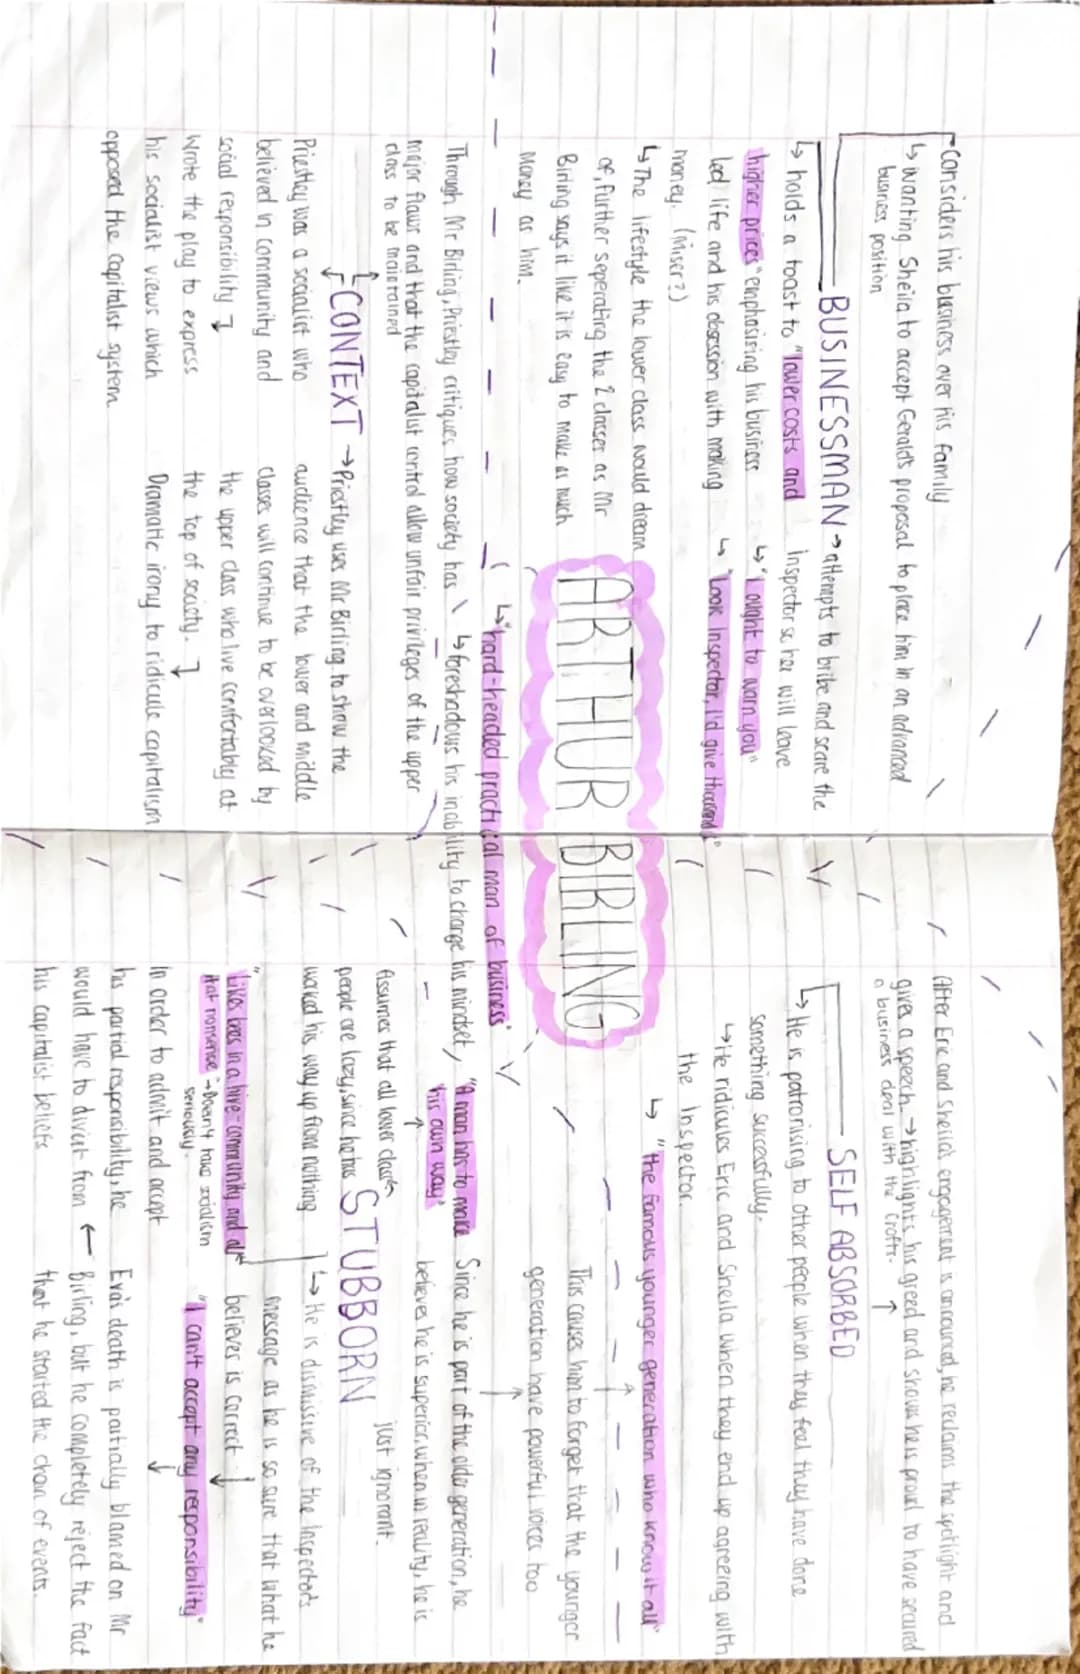 Considers his business over his family
↳ Wanting Sheila to accept Gerald's proposal to place him in an advanced
business position
BUSINESSMAN → attempts to bribe and scare the
Inspector so he will leave
↳ "I ought to warn you"
↳ "Look Inspector, I'd give thousands"
↳ holds a toast to "lower costs and
higher prices" emphasising his business
led life and his obsession with making
money. (Miser?)
↳ The lifestyle the lower class would dream
of, further seperating the 2 classes as Mr
Birling says it like it is easy to make as much
Money as him.
ARTHUR BIRLING
↳ "hard-headed practical man of business"
↳ foreshadows his inability to change his mindset,
Through Mr Birling, Priestley critiques how society has
major flaws and that the capitalist control allow unfair privileges of the upper
class to be maintained
CONTEXT → Priestley uses Mr Birling to show the
audience that the lower and middle
classes will continue to be overlooked by
the upper class who live comfortably at
the top of society.
Dramatic irony to ridicule capitalism
Priestley was a socialist who
believed in community and
social responsibility
Wrote the play to express
his socialist views which
opposed the capitalist system
After Eric and Sheila's engagement is announced, he reclaims the spotlight and
gives a speech. → highlights his greed and shows he is proud to have secured
a business deal with the Crofts.
SELF ABSORBED
↳ He is patronising to other people when they feel they have done
something successfully.
↳ He ridicules Eric and Sheila when they end up agreeing with
the Inspector.
↳ "the famous younger generation who know it all"
This causes him to forget that the younger
generation have powerful voices too
"A man has to make
his own way"
Since he is part of the older generation, he
believes he is superior, when in reality, he is
just ignorant.
Assumes that all lower class
people are lazy, since he has
worked his way up from nothing
STUBBORN
↳ He is dismissive of the Inspector's
message as he is so sure that what he
believes is correct
"I can't accept any responsibility"
"Like bees in a hive - community and all
that nonsense → Doesn't take socialism
seriously.
In order to admit and accept
his partial responsibility, he
would have to divert from
his capitalist beliefs
Eva's death is partially blamed on Mr
Birling, but he completely reject the fact
that he started the chain of events.